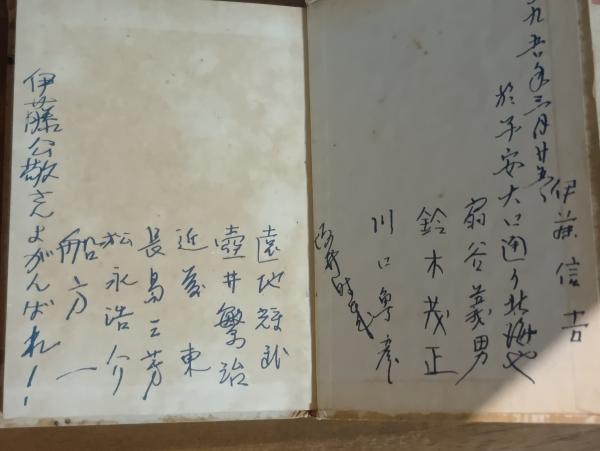 三月廿
於平安大口通り北海や
伊藤信吉
扇谷義男
鈴木茂正
川口
遠地輝武
壺井繁治
近藤東
長島三芳
松永浩介
船方一
伊藤公敬さんよがんばれ!